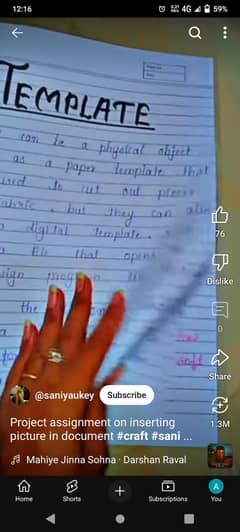 12:16
4G
59%
TEMPLATE
can be a physical object
as a paper template that
used to cut out pieces
fabric, but they can also
a digital template.
a file that opens
the
76
Dislike
0
Share
1.3M
@saniyaukey
Subscribe
Project assignment on inserting
picture in document #craft #sani ...
Mahiye Jinna Sohna · Darshan Raval
Home
Shorts
Subscriptions
You